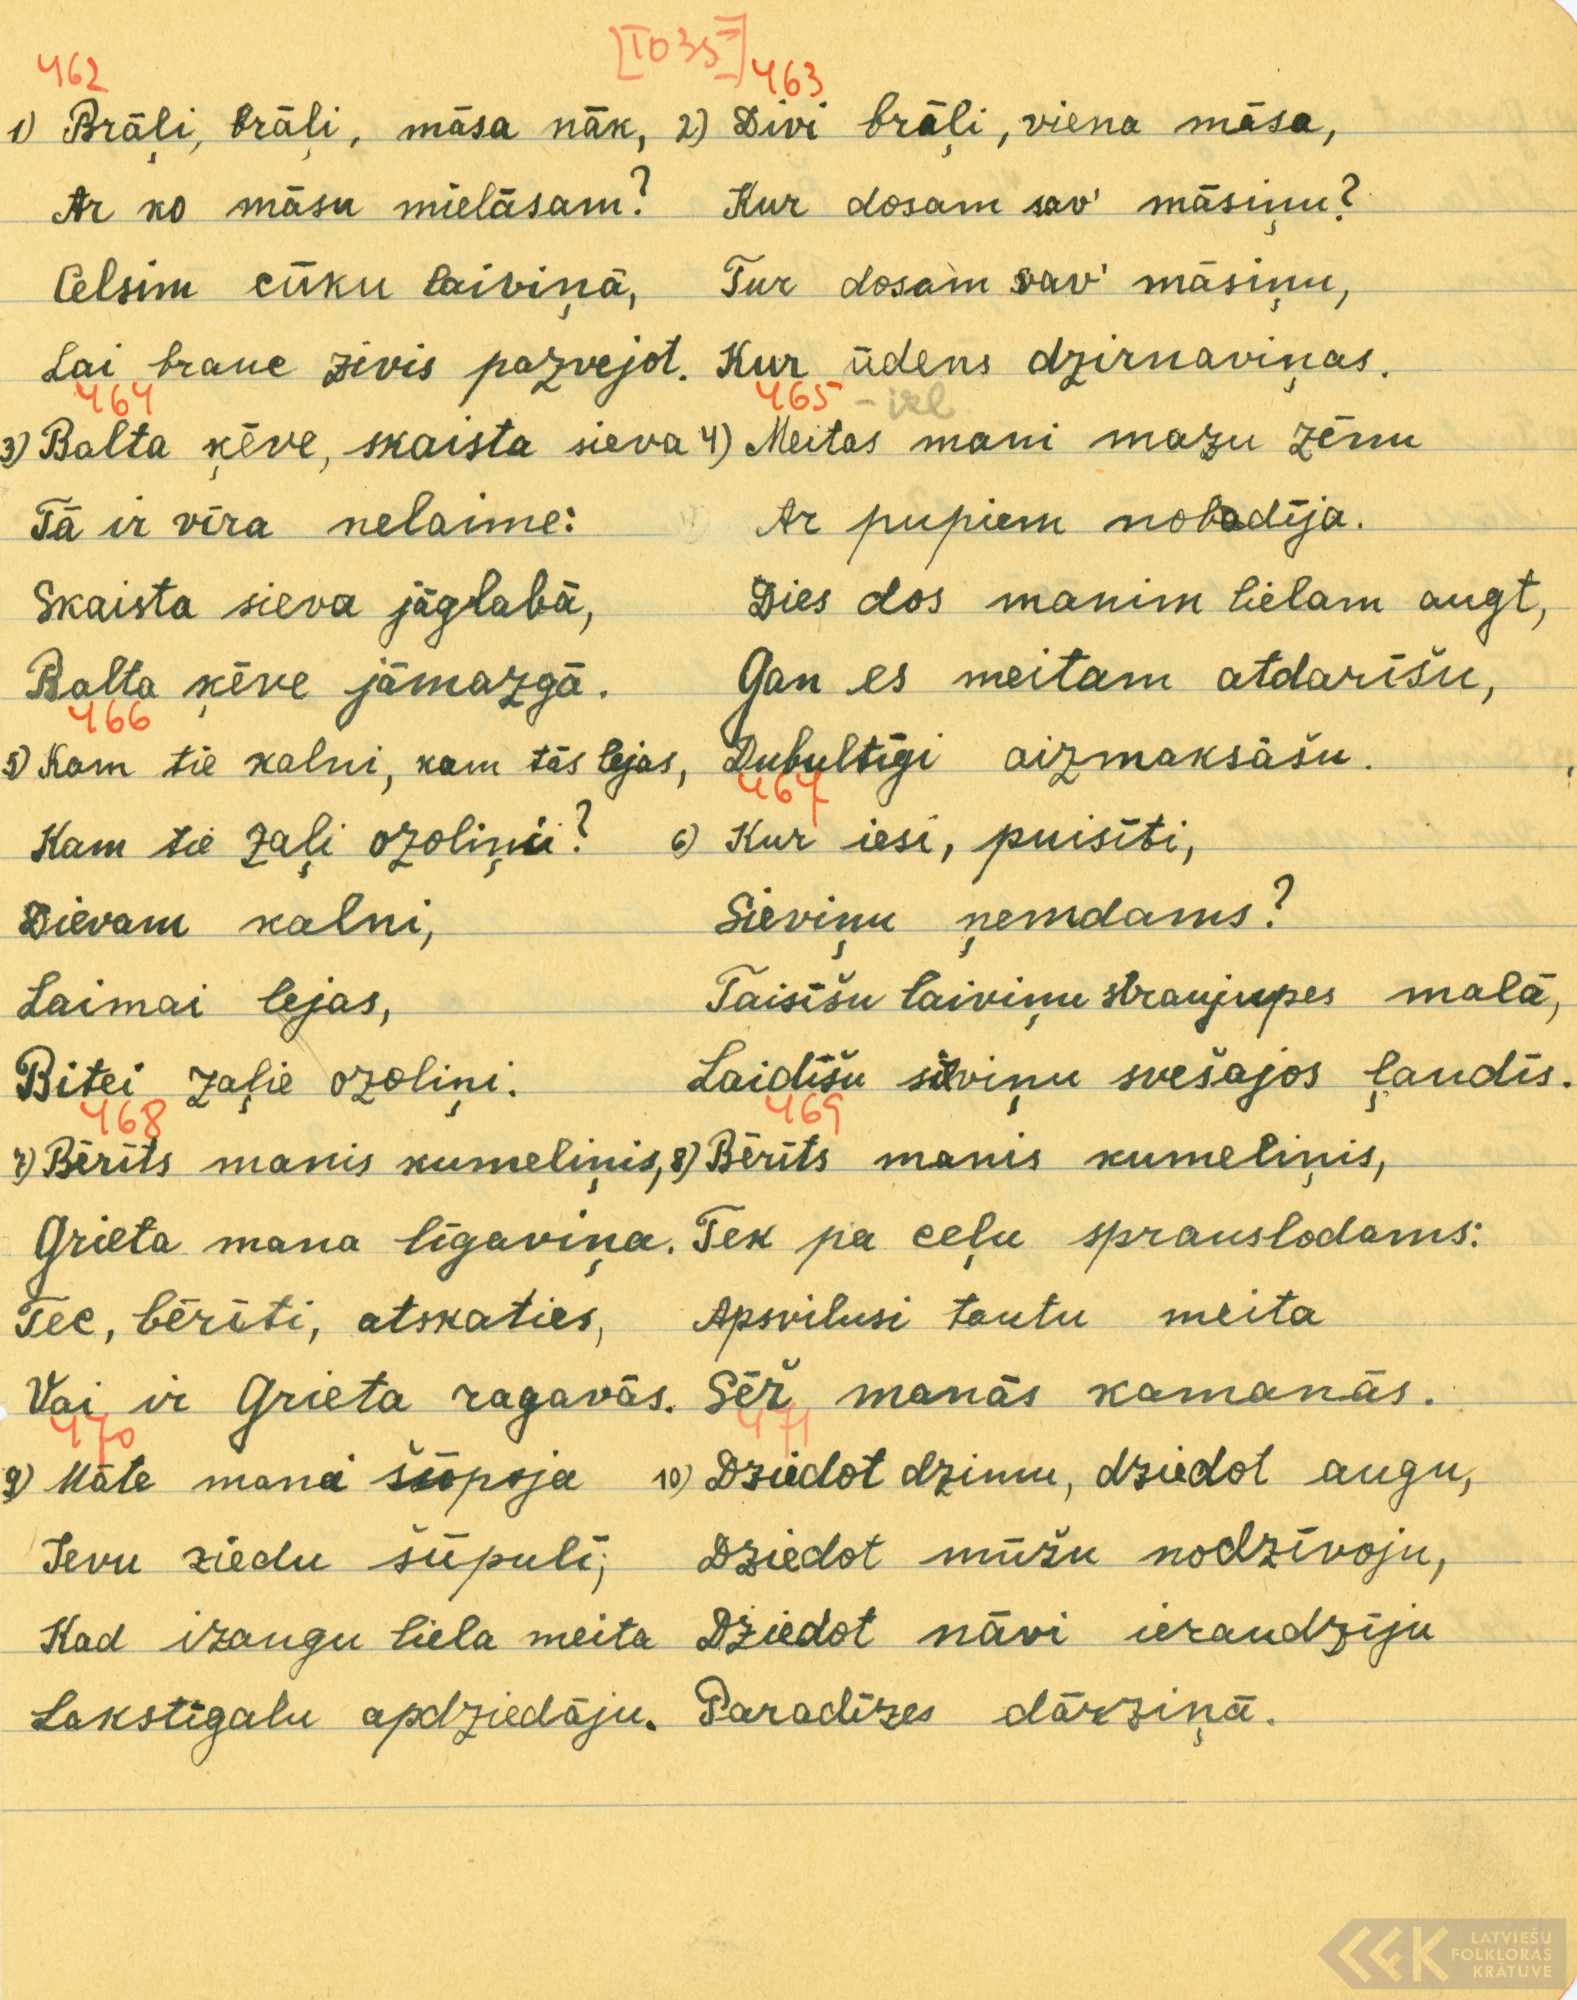 [1035]
462
1) Brāļi, brāļi, māsa nāk,
Ar ko māsu mielāsam?
Celsim cūku laiviņā,
Lai brauc zivis pazvejot.
463
2) Divi brāļi, viena māsa,
Kur dosam sav' māsiņu?
Tur dosam sav' māsiņu,
Kur ūdens dzirnaviņas.
464
3) Balta ķēve, skaista sieva
Tā ir vīra nelaime:
Skaista sieva jāglabā,
Balta ķēve jāmazgā.
465 - izl
4) Meitas mani mazu zēnu
Ar pupiem nobadīja.
Dies dos manim lielam augt,
Gan es meitam atdarīšu,
Dubultīgi aizmaksāšu.
466
5) Kam tie kalni, kam tās lejas,
Kam tie zaļi ozoliņi?
Dievam kalni,
Laimai lejas,
Bitei zaļie ozoliņi.
467
6) Kur iesi, puisīti,
Sieviņu ņemdams?
Taisīšu laiviņu straujupes malā,
Laidīšu sieviņu svešajos ļaudīs.
468
7) Bērīts manis kumeliņis,
Grieta mana līgaviņa.
Tec, bērīti, atskaties,
Vai ir Grieta ragavās.
469
8) Bērīts manis kumeliņis,
Tek pa ceļu sprauslodams:
Apsvilusi tautu meita
Sēž manās kamanās.
470
9) Māte manei šūpoja
Ievu ziedu šūpulī;
Kad izaugu liela meita
Lakstīgalu apdziedāju.
471
10) Dziedot dzimu, dziedot augu,
Dziedot mūžu nodzīvoju,
Dziedot nāvi ieraudzīju
Paradīzes dārziņā.
LATVIEŠU
FOLKLORAS
KRĀTUVE